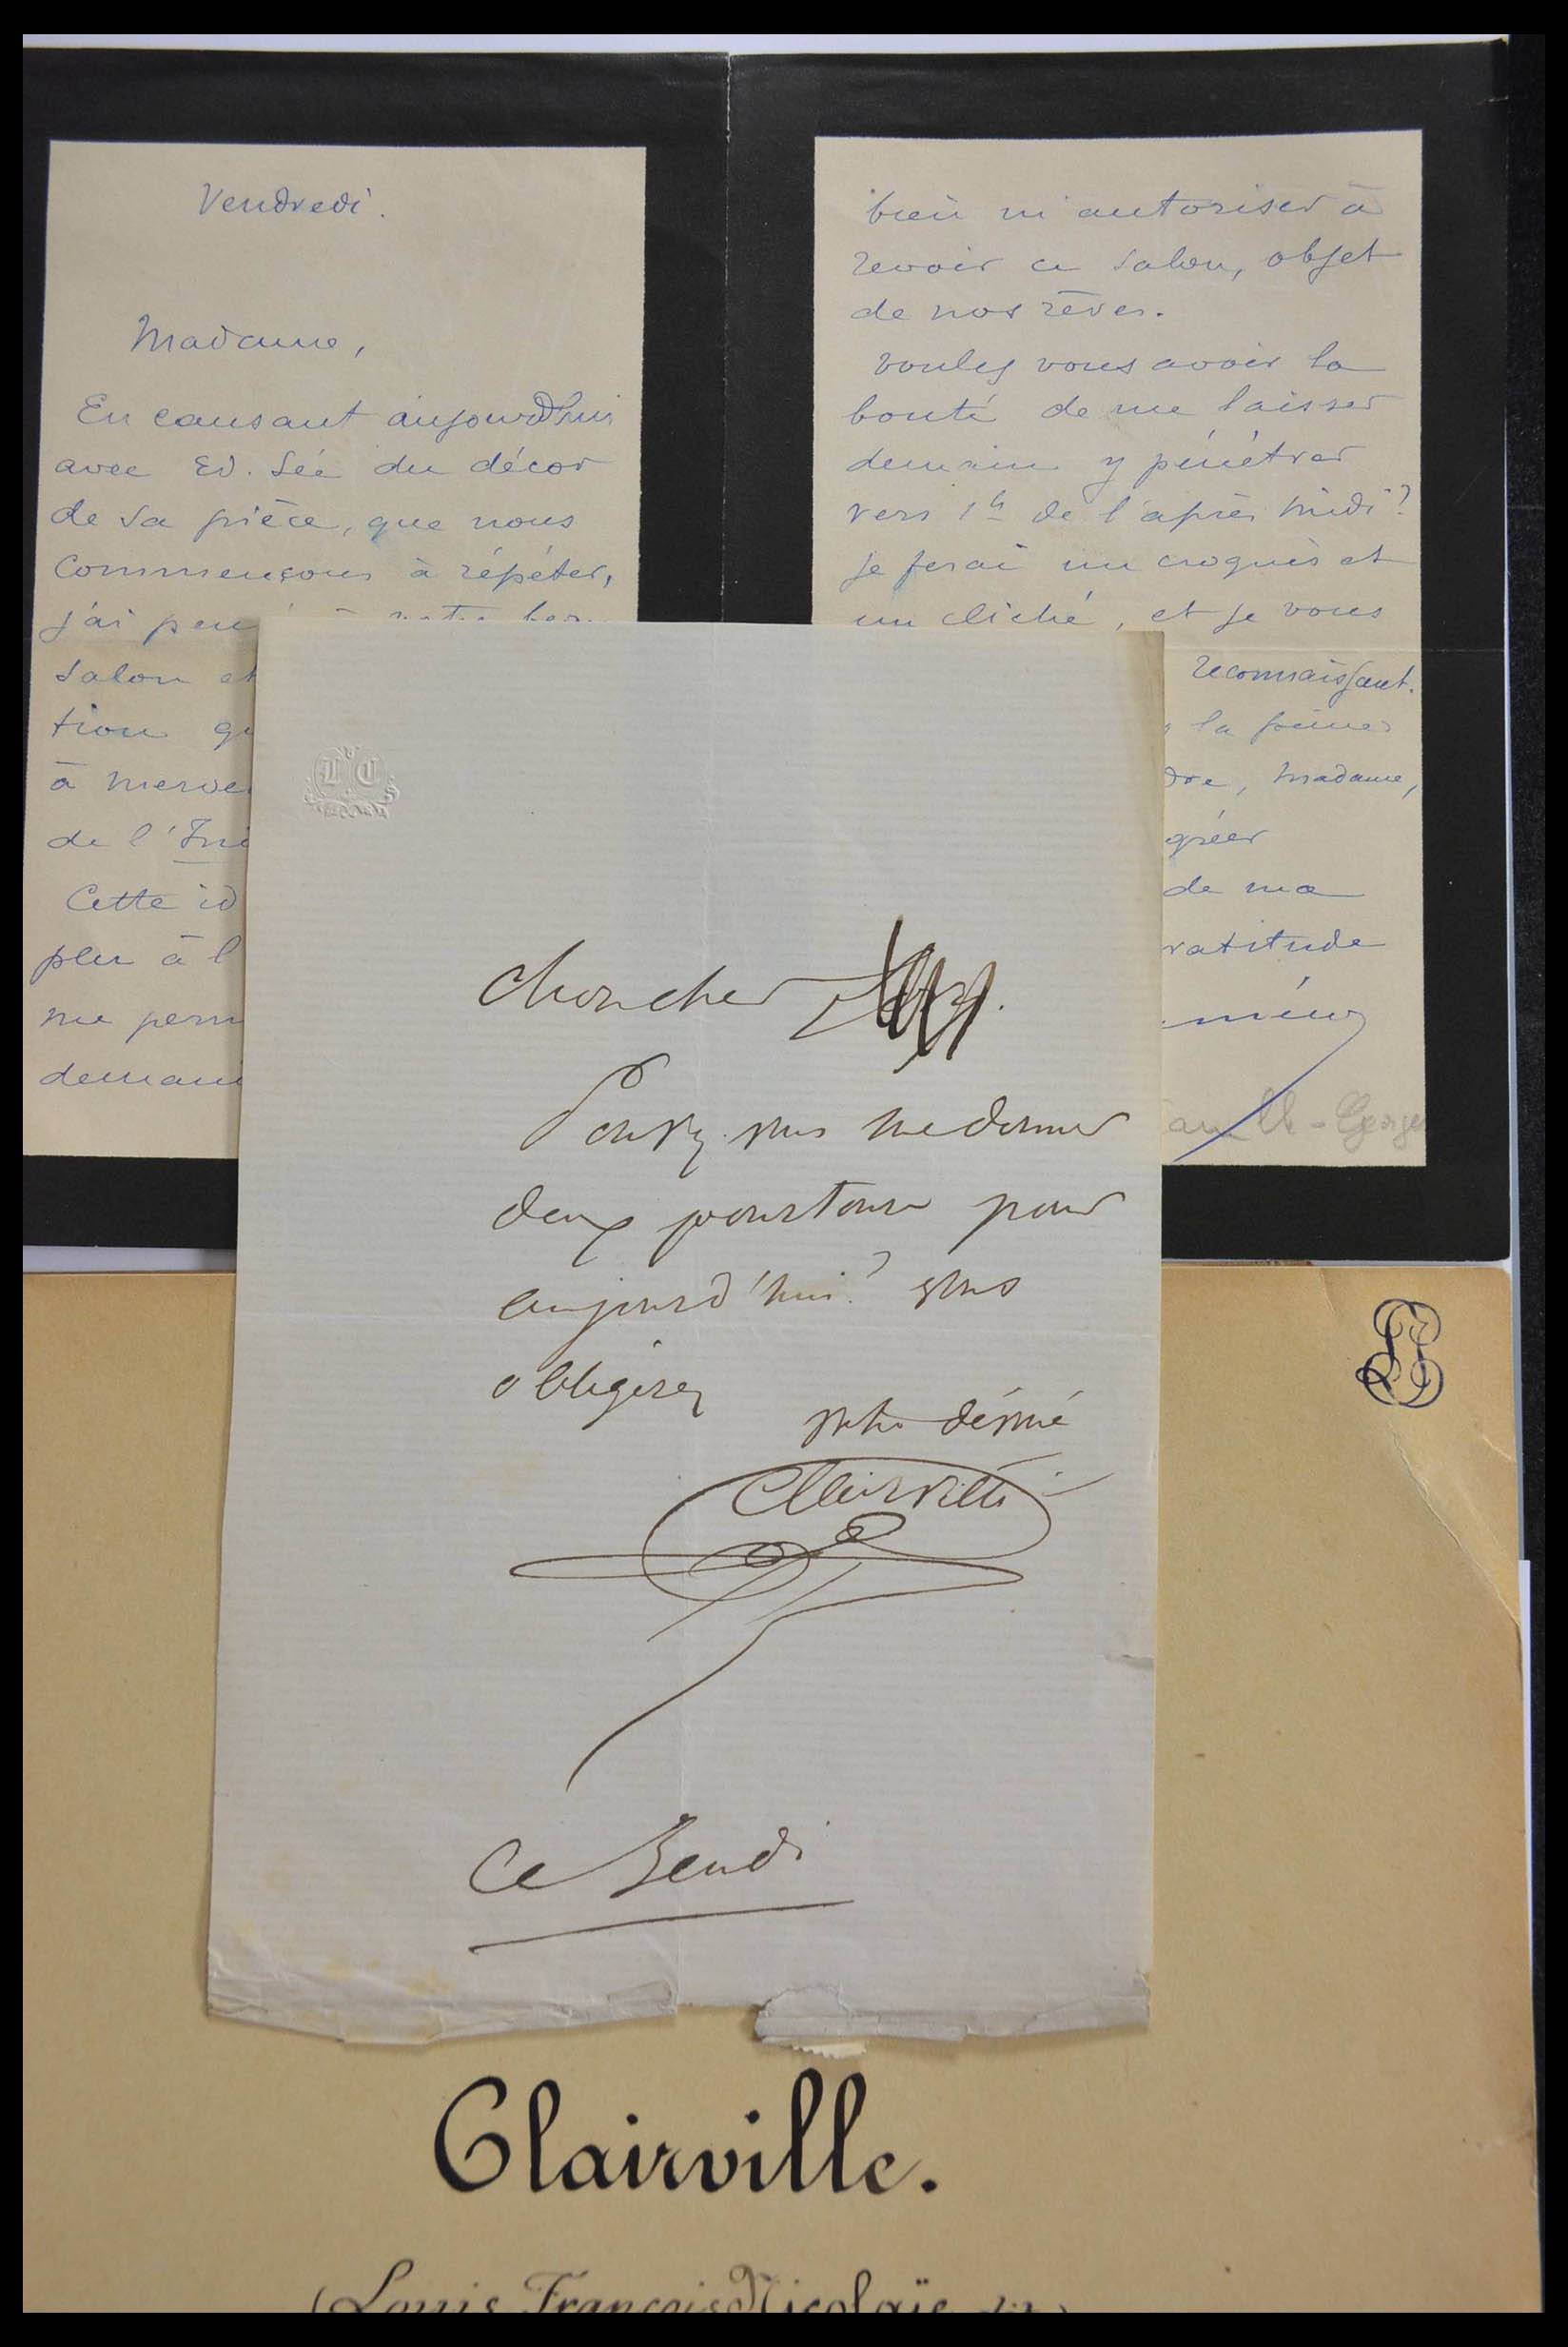 Vendredi.
Madame,
En causant aujourd'hui
avec Ed. Sée du décor
de sa pièce, que nous
commençons à répéter,
j'ai
salon et
tion
à
de l'
Cette
plu à l
me
bien m'autoriser à
revoir ce salon, objet
de nos rêves.
voulez vous avoir la
bonté de me laisser
demain y pénétrer
vers 1h de l'après midi?
Je ferai un croquis et
un cliché, et je vous
reconnaissant.
la
Madame,
gréer
de ma
ratitude
L C
Mon cher
Pouvez vous me donner
deux pourtour pour
aujourd'hui? vous
obligerez
votre dévoué
Clairville
Ce Jeudi
Clairville.
(Louis François Nicolaïe, dit)